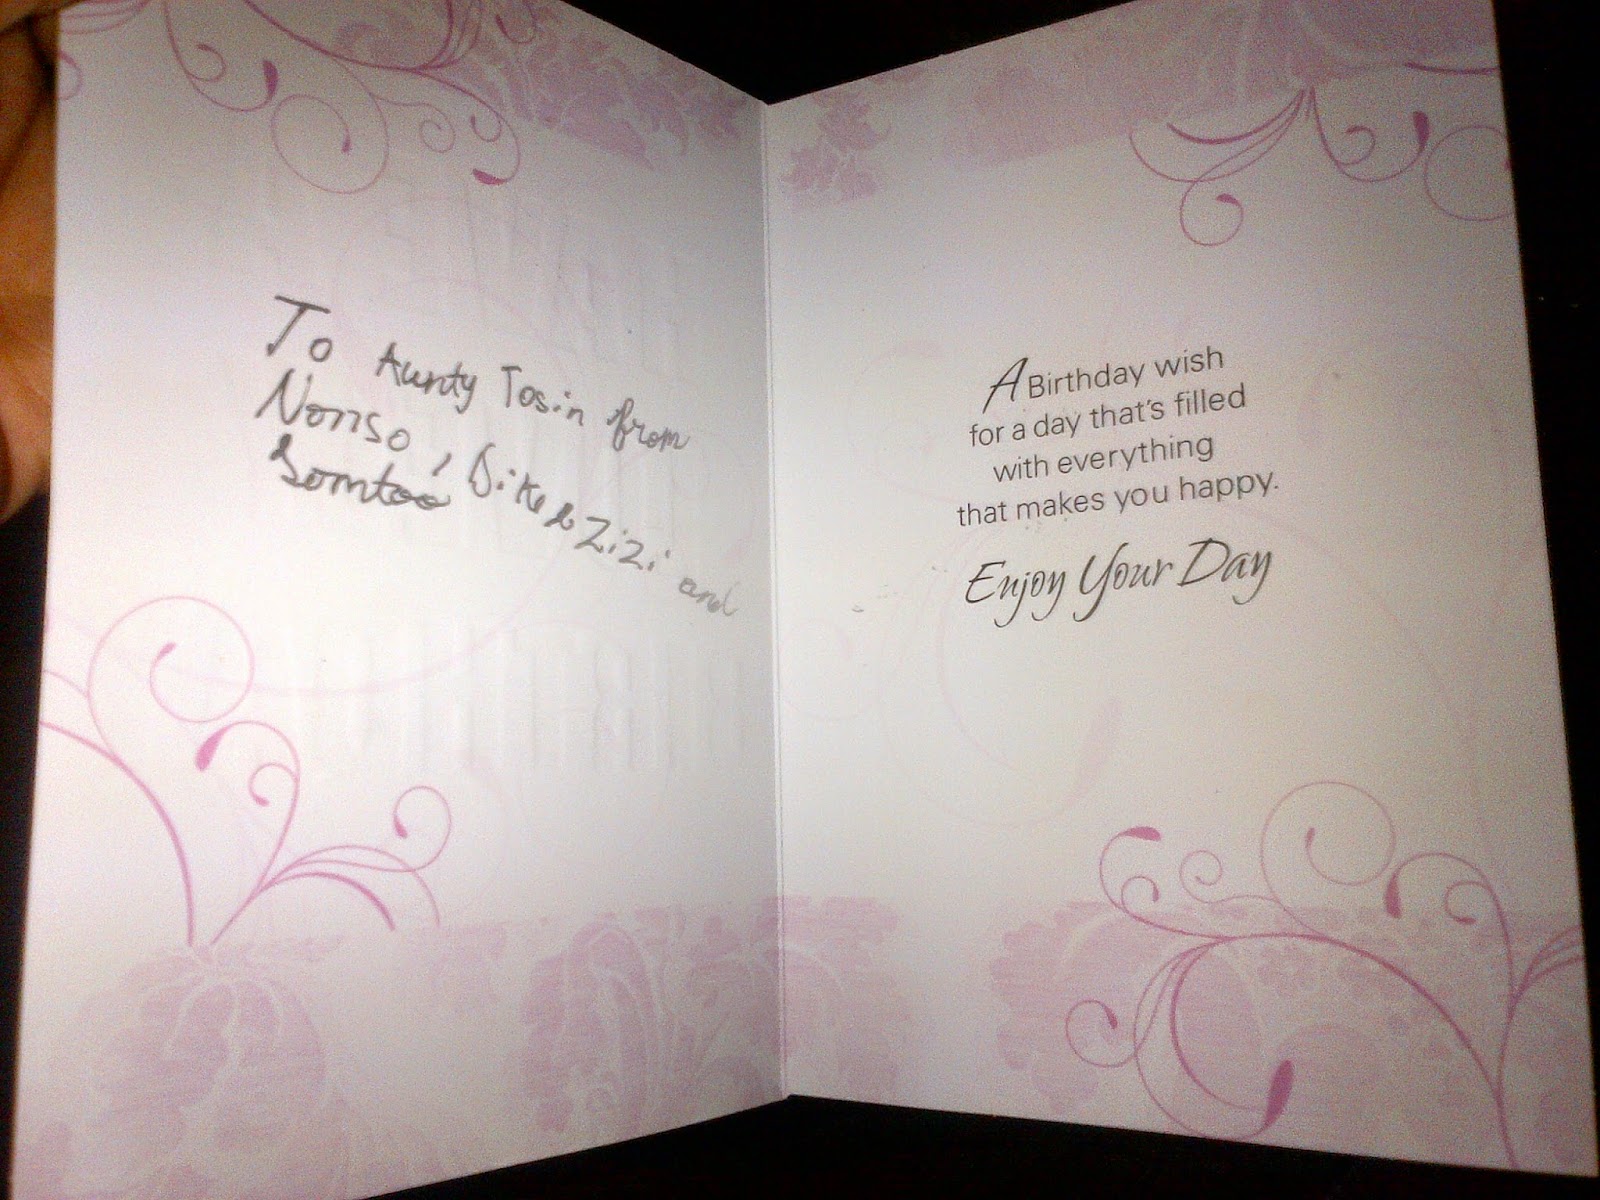 To Aunty Tosin from
Nonso, Dike & Zizi and
Somtoo
A Birthday wish
for a day that's filled
with everything
that makes you happy.
Enjoy Your Day